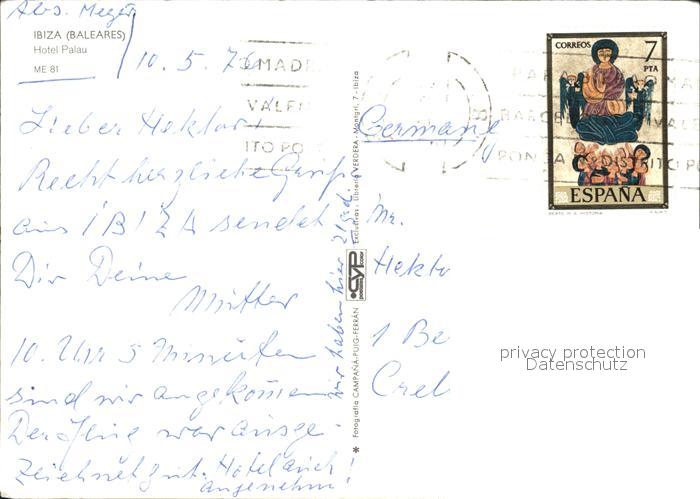 Abs. Meyer
IBIZA (BALEARES)
Hotel Palau
ME 81
10. 5. 76
Lieber Hektor,
Recht herzliche Grüße
aus IBIZA sendet
Dir Deine
Mutter
10. Uhr 5 Minuten
sind wir angekommen
Der Flug war ausge-
zeichnet gut. Hotel auch
angenehm!
wir haben hier 21 Grad.
Exclusivas: Librería VERDERA - Montgrí, 7 - Ibiza
CYP
Fotografía CAMPAÑA-PUIG-FERRÁN
MADR
VALEN
ITO PO
PONGA DISTRITO PO
CORREOS
7
PTA
ESPAÑA
Germany
Mr.
Hekto
1 Be
Cref
privacy protection
Datenschutz